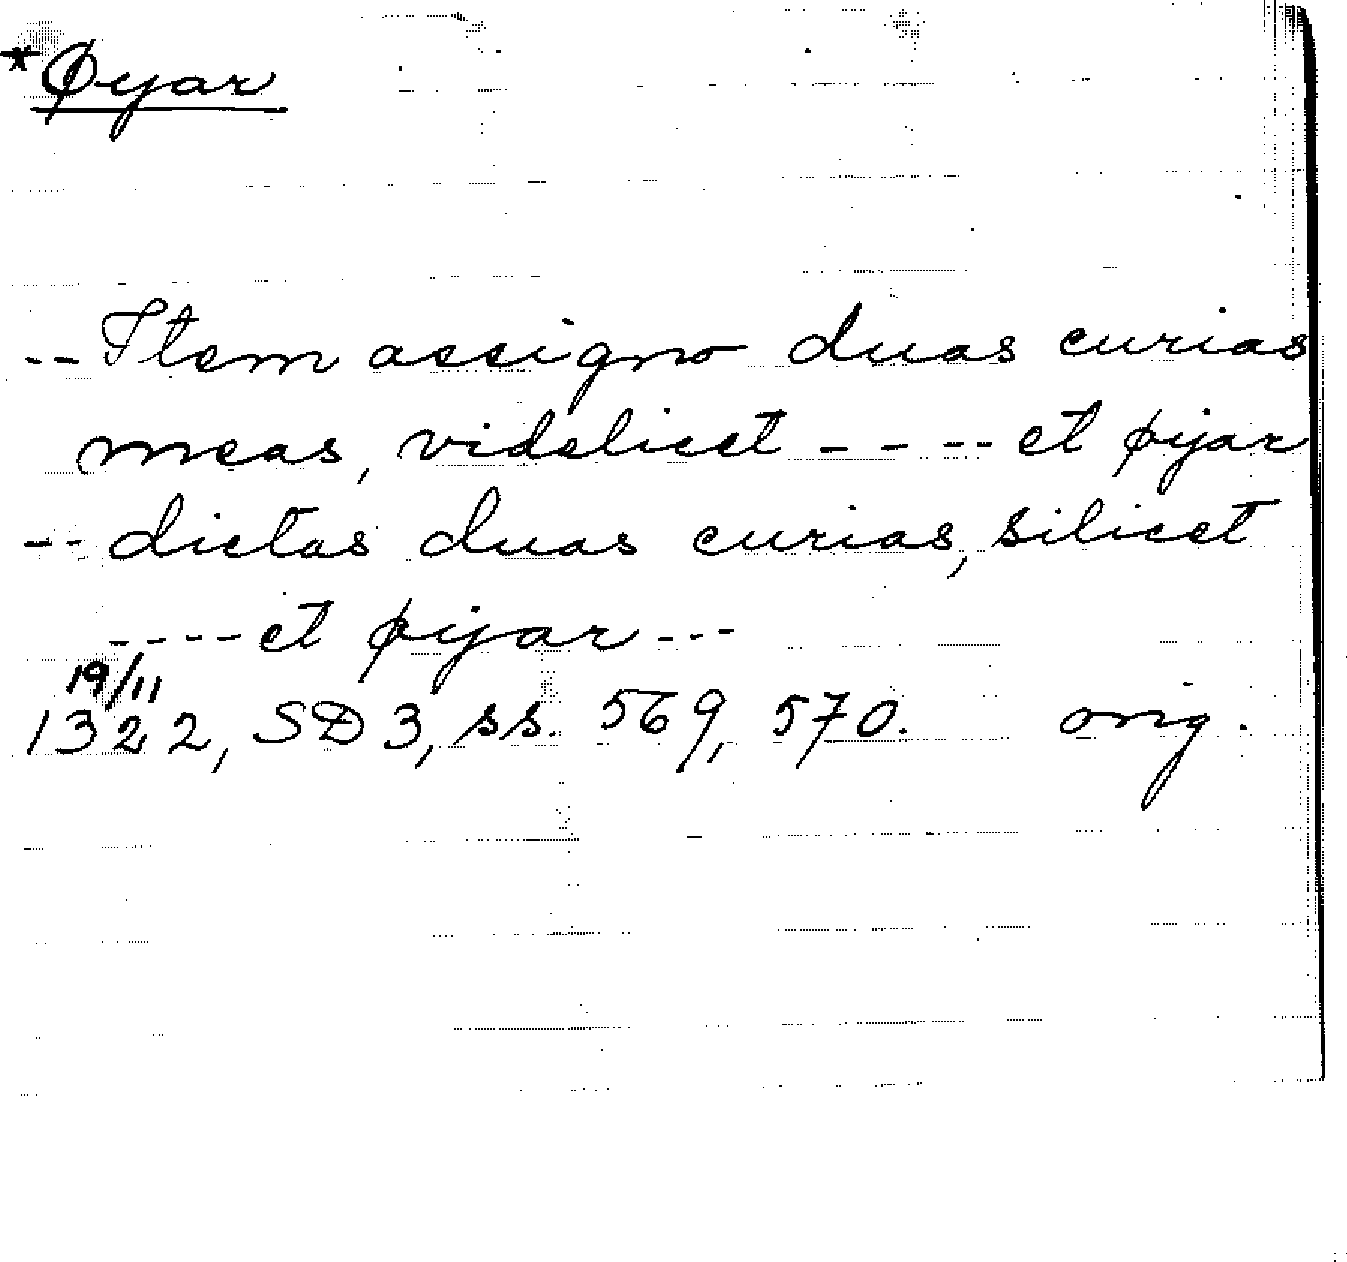 *Øyar
-- Item assigno duas curias
meas, videlicet - - -- et øyar
-- dictas duas curias, silicet
---- et øyar ---
19/11
1322, SD 3, ss. 569, 570. orig.